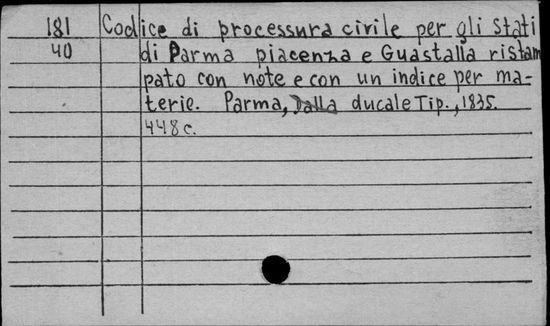 181 Codice di processura civile per gli Stati
40 di Parma piacenza e Guastalla ristam
pato con note e con un indice per ma-
terie. Parma, Dalla ducale Tip., 1835.
448 c.